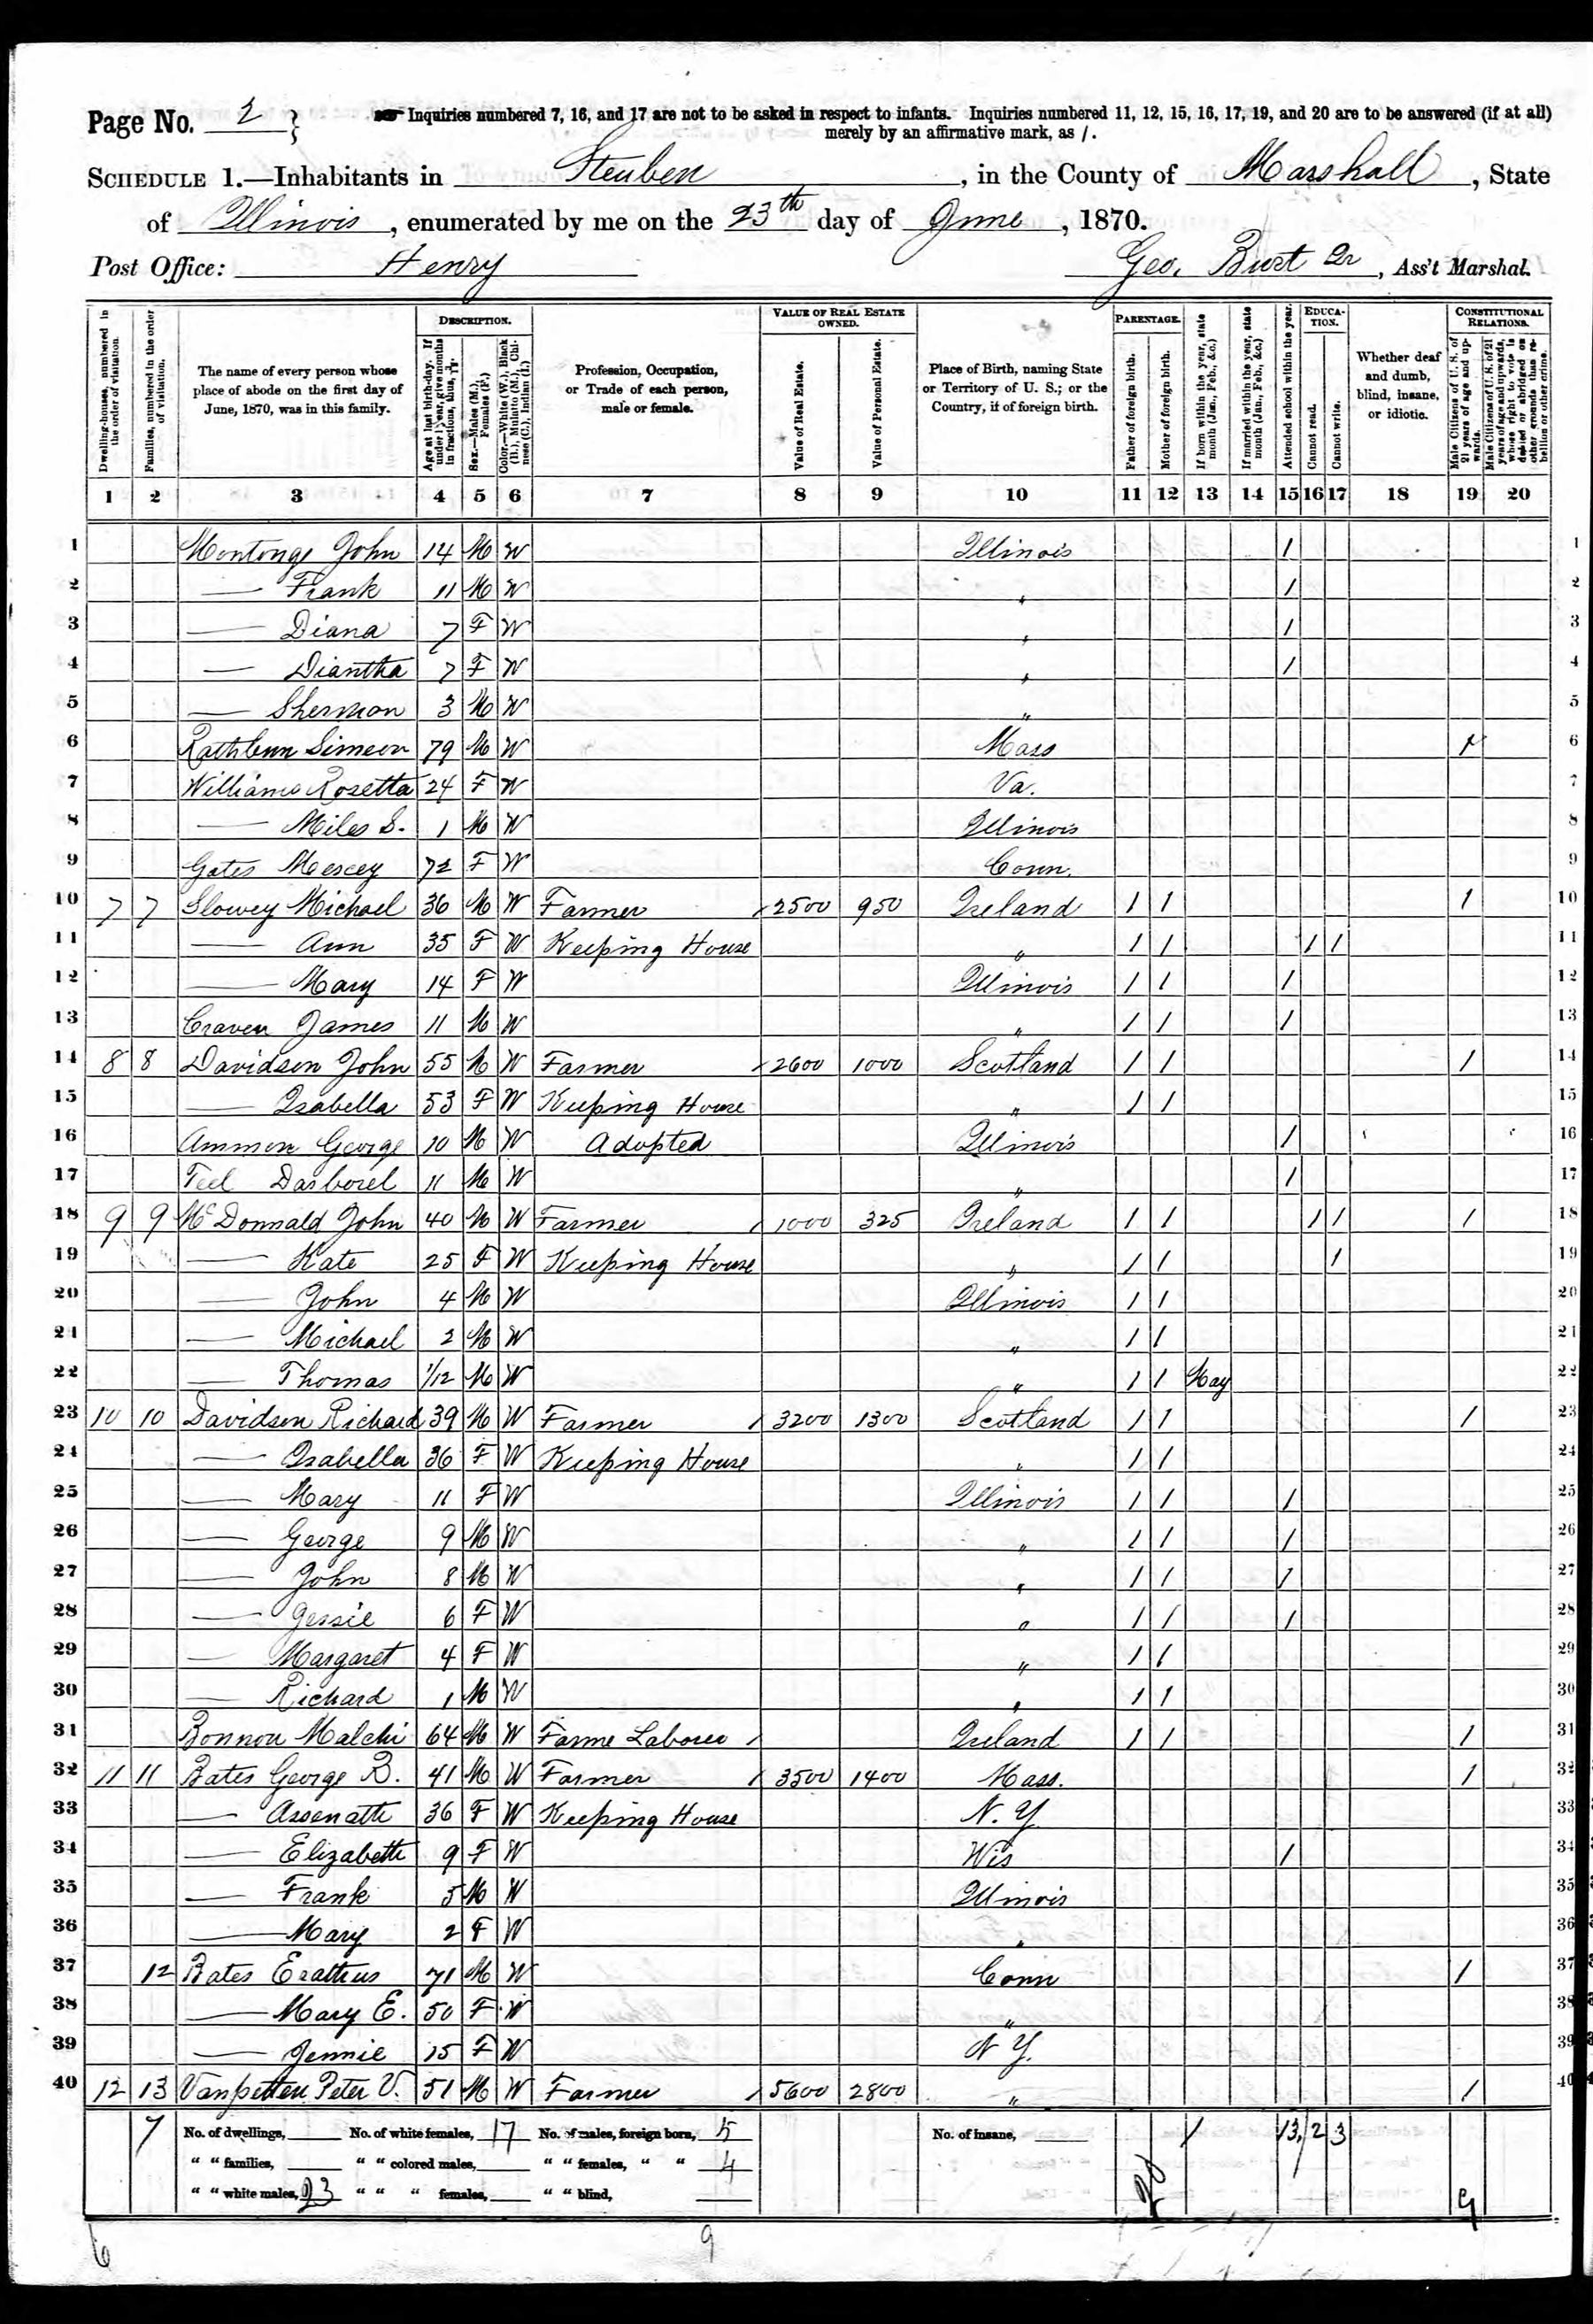 Page No. 2 } Inquiries numbered 7, 16, and 17 are not to be asked in respect to infants. Inquiries numbered 11, 12, 15, 16, 17, 19, and 20 are to be answered (if at all)
merely by an affirmative mark, as /.
SCHEDULE 1.—Inhabitants in Steuben, in the County of Marshall, State
of Illinois, enumerated by me on the 23th day of June, 1870.
Post Office: Henry Geo. Burt Jr, Ass't Marshal.
Dwelling-houses, numbered in the order of visitation.
Families, numbered in the order of visitation.
The name of every person whose place of abode on the first day of June, 1870, was in this family.
DESCRIPTION.
Age at last birth-day. If under 1 year, give months in fractions, thus, 3/12.
Sex.—Males (M.), Females (F.)
Color.—White (W.), Black (B.), Mulatto (M.), Chinese (C.), Indian (I.)
Profession, Occupation, or Trade of each person, male or female.
VALUE OF REAL ESTATE OWNED.
Value of Real Estate.
Value of Personal Estate.
Place of Birth, naming State or Territory of U. S.; or the Country, if of foreign birth.
PARENTAGE.
Father of foreign birth.
Mother of foreign birth.
If born within the year, state month (Jan., Feb., &c.)
If married within the year, state month (Jan., Feb., &c.)
Attended school within the year.
EDUCATION.
Cannot read.
Cannot write.
Whether deaf and dumb, blind, insane, or idiotic.
CONSTITUTIONAL RELATIONS.
Male Citizens of U. S. of 21 years of age and upwards.
Male Citizens of U. S. of 21 years of age and upwards, whose right to vote is denied or abridged on other grounds than rebellion or other crime.
1 2 3 4 5 6 7 8 9 10 11 12 13 14 15 16 17 18 19 20
1 John 14 M W Illinois / 1
2 — Frank 11 M W " / 2
3 — Diana 7 F W " / 3
4 — Diantha 7 F W " / 4
5 — Sherman 3 M W " 5
6 Rathbun Simeon 79 M W Mass / 6
7 Williams Rosetta 24 F W Va. 7
8 — Miles S. 1 M W Illinois 8
9 Gates Mercey 72 F W Conn. 9
10 7 7 Slowey Michael 36 M W Farmer 2500 950 Ireland / / / 10
11 — Ann 35 F W Keeping House " / / / / 11
12 — Mary 14 F W Illinois / / / 12
13 Craven James 11 M W " / / / 13
14 8 8 Davidson John 55 M W Farmer 2600 1000 Scotland / / / 14
15 — Isabella 53 F W Keeping House " / / 15
16 Ammon George 10 M W Adopted Illinois / 16
17 Teel 11 M W " / 17
18 9 9 McDonnald John 40 M W Farmer 1000 325 Ireland / / / / / 18
19 — Kate 25 F W Keeping House " / / / 19
20 — John 4 M W Illinois / / 20
21 — Michael 2 M W " / / 21
22 — Thomas 1/12 M W " / / May 22
23 10 10 Davidson Richard 39 M W Farmer 3200 1300 Scotland / / / 23
24 — Isabella 36 F W Keeping House " / / 24
25 — Mary 11 F W Illinois / / / 25
26 — George 9 M W " / / / 26
27 — John 8 M W " / / / 27
28 — Jessie 6 F W " / / / 28
29 — Margaret 4 F W " / / 29
30 — Richard 1 M W " / / 30
31 Malchi 64 M W Farme Laborer Ireland / / / 31
32 11 11 Bates George B. 41 M W Farmer 3500 1400 Mass. / 32
33 — Assenath 36 F W Keeping House N. Y. 33
34 — Elizabeth 9 F W Wis / 34
35 — Frank 5 M W Illinois 35
36 — Mary 2 F W " 36
37 12 Bates Erattus 71 M W Conn / 37
38 — Mary E. 50 F W " 38
39 — Jennie 15 F W N Y. 39
40 12 13 Vanpetten Peter V. 51 M W Farmer 5600 2800 " / 40
7 No. of dwellings, No. of white females, 17 No. of males, foreign born, 5 No. of insane, / 13, 2 3
" " families, " " colored males, " " females, " " 4
" " white males, 23 " " " females, " " blind, 9
6 9